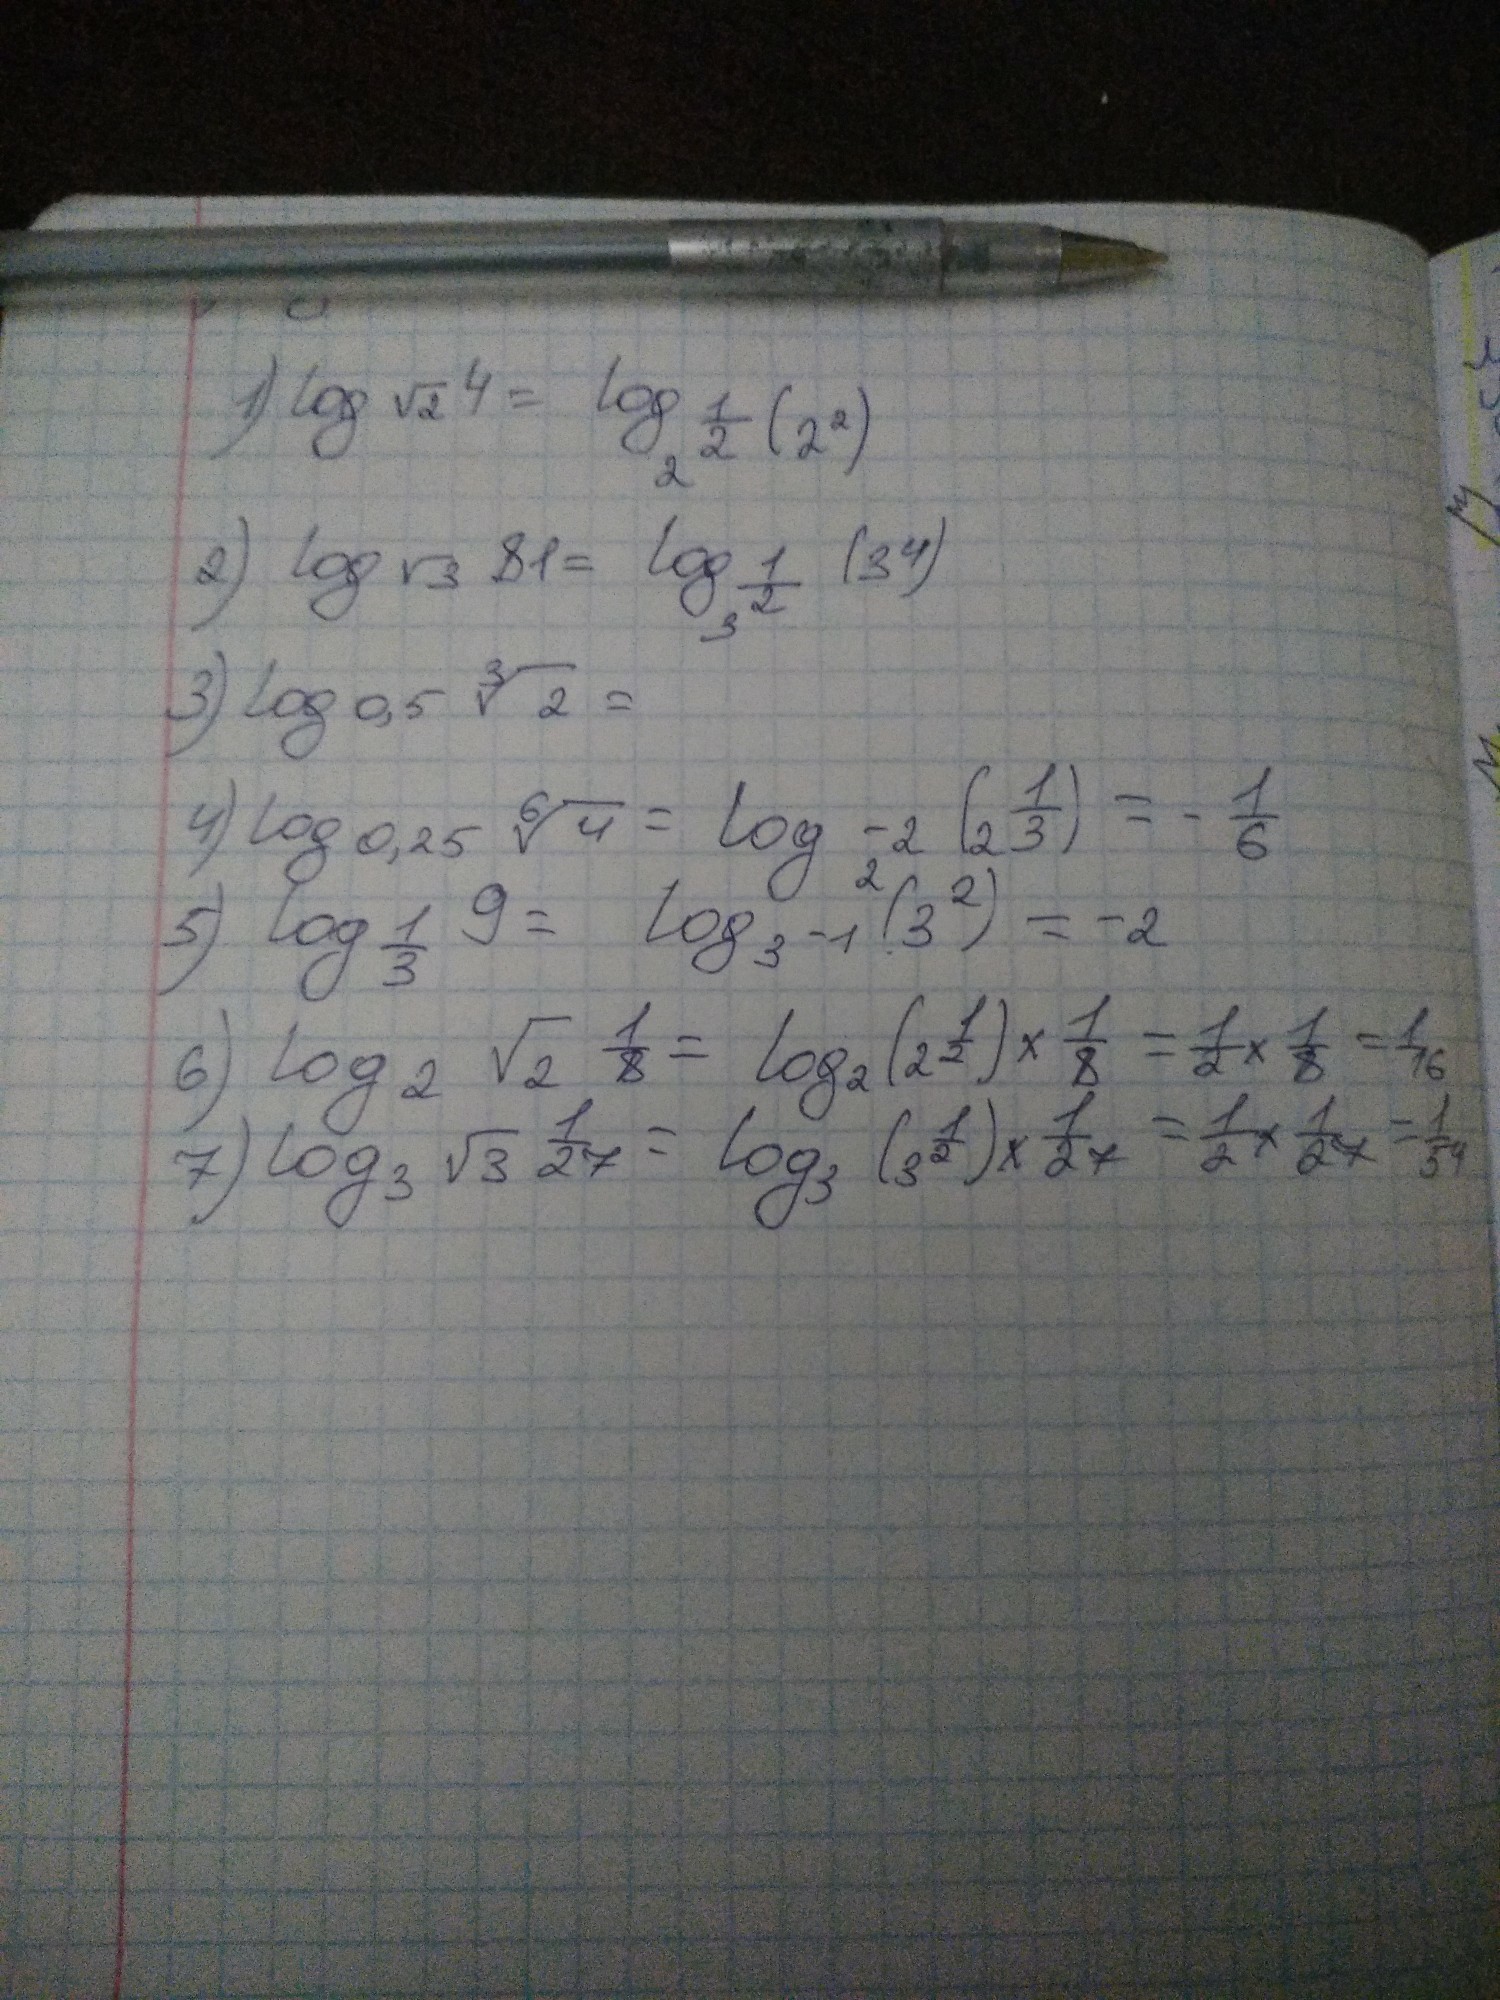 1) log √2 4 = log 2 1/2 (2²)
2) log √3 81 = log 3 1/2 (3⁴)
3) log 0,5 ∛2 =
4) log 0,25 ⁶√4 = log 2 -2 (2 1/3) = - 1/6
5) log 1/3 9 = log 3 -1 (3²) = -2
6) log 2 √2 1/8 = log 2 (2 1/2) × 1/8 = 1/2 × 1/8 = 1/16
7) log 3 √3 1/27 = log 3 (3 1/2) × 1/27 = 1/2 × 1/27 = 1/54